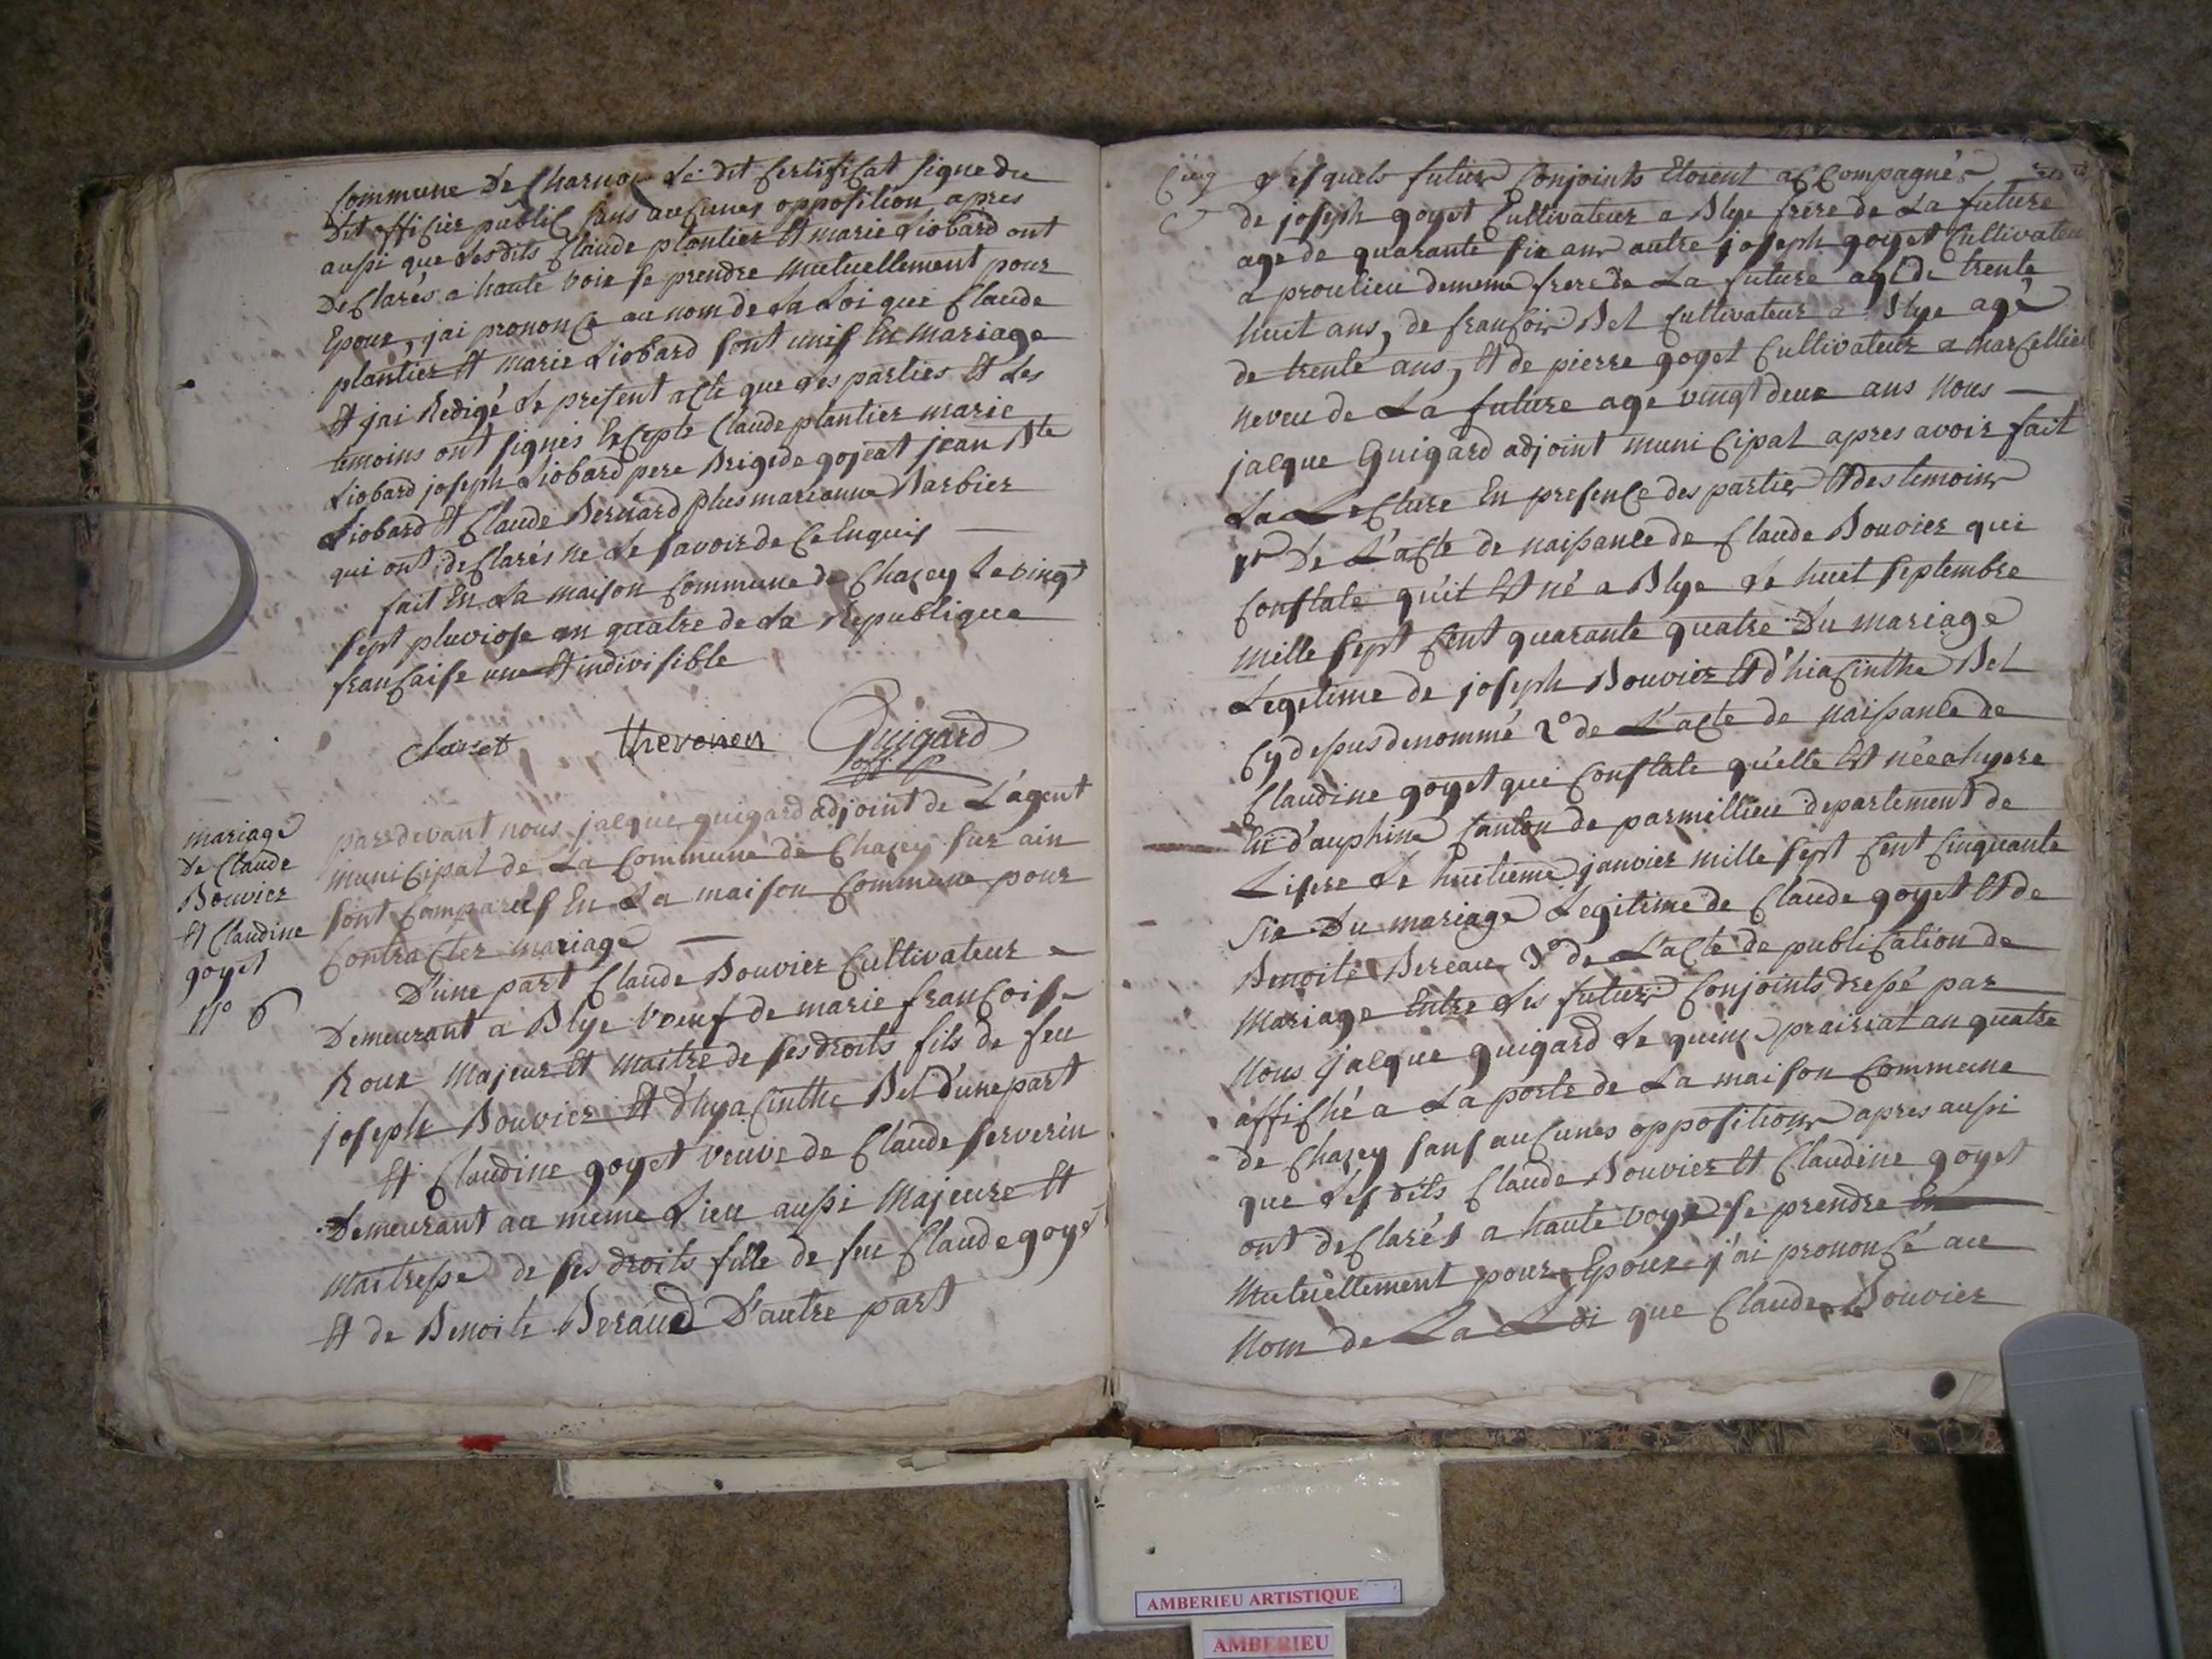 Commune De Charnoz Le dit Certificat signe du
Dit officier public sans aucunes opposition apres
aussi que Lesdits Claude plantier Et marie Liobard ont
Declarés a haute voix se prendre Mutuellement pour
Epoux, jai prononcé au nom de La Loi que Claude
plantier Et marie Liobard sont unis En Mariage
Et jai Redigé Le present acte que Les parties Et Les
temoins ont signés Excepte Claude plantier marie
Liobard joseph Liobard pere Brigide gojeat jean Bte
Liobard Et Claude Bernard plus marianne Barbier
qui ont declarés ne Le savoir de Ce Enquis
fait En La maison Commune de Chazey Le vingt
sept pluviose an quatre de La Republique
francaise une Et indivisible
thevonen Guigard
off. p.
mariage
De Claude
Bouvier
Et Claudine
goyet
No 6
pardevant nous jacque guigard adjoint de L'agent
municipal de La Commune de Chazey sur ain
sont Comparus En La maison Commune pour
Contracter mariage
D'une part Claude Bouvier Cultivateur
Demeurant a Blye veuf de marie francoise
Roux Majeur Et maitre de ses droits fils de feu
joseph Bouvier Et d'hyacinthe Bel d'une part
Et Claudine goyet veuve de Claude serverin
Demeurant au meme Lieu aussi Majeure Et
Maitresse de ses droits fille de feu Claude goyet
Et de Benoite Beraud D'autre part
Cinq
Lesquels futurs Conjoints Etoient accompagnés
de joseph goyet Cultivateur a Blye frere de La future
age de quarante six ans autre joseph goyet Cultivateur
a proulieu de meme frere de La future agé de trente
huit ans, de francois Bel Cultivateur a Blye agé
de trente ans, Et de pierre goyet Cultivateur a marcellieu
neveu de La future age vingt deux ans Nous
jacque Guigard adjoint municipal apres avoir fait
La Lecture En presence des parties Et des temoins
1o De L'acte de naissance de Claude Bouvier qui
Constate qu'il Est né a Blye Le huit septembre
mille sept Cent quarante quatre Du mariage
Legetime de joseph Bouvier Et d'hiacinthe Bel
Cy dessus denommé 2o de L'acte de Naissance de
Claudine goyet qui Constate qu'elle Est née ahyere
En d'auphine Canton de parmillieu departement de
Lisere Le huitieme janvier mille sept Cent Cinquante
six Du mariage Legitime de Claude goyet Et de
Benoite Bereau 3o de L'acte de publication de
Mariage Entre Les futurs Conjoints dressé par
Nous jacque guigard Le quinze prairial an quatre
affiché a La porte de La maison Commune
de Chazey sans aucunes oppositions apres aussi
que Lesdits Claude Bouvier Et Claudine goyet
ont declarés a haute voye se prendre
Mutuellement pour Epoux j'ai prononcé au
Nom de La Loi que Claude Bouvier
AMBERIEU ARTISTIQUE
AMBERIEU